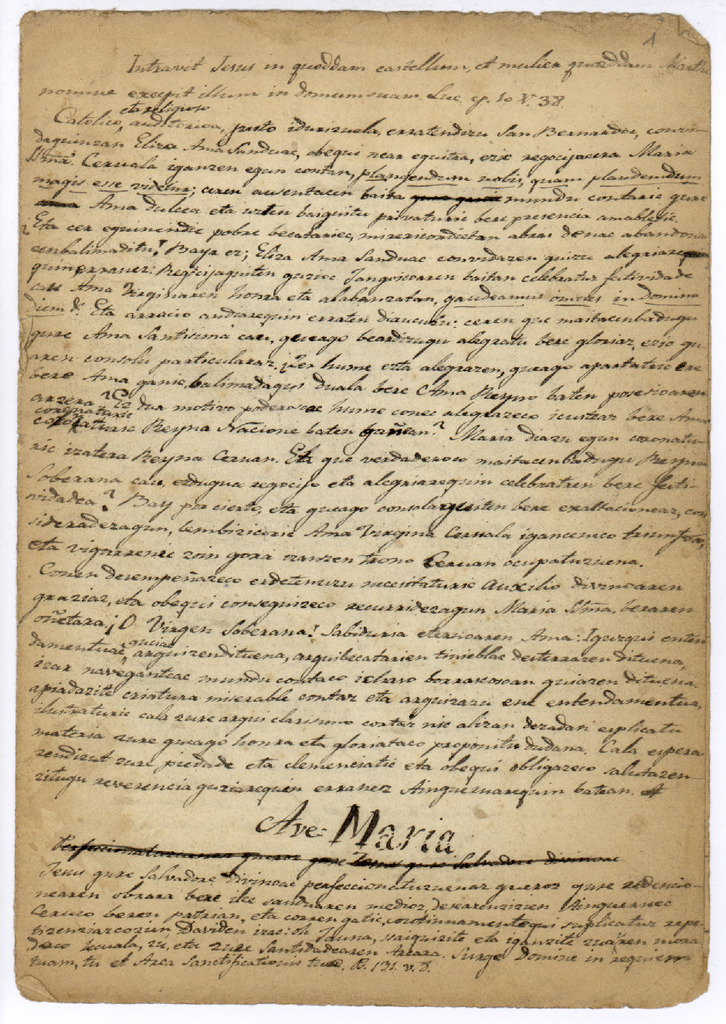 1
Intravit Jesus in quoddam castellum, et mulier quaedam Martha
nomine excepit illum in domum suam. Luc. cp. 10 V. 38.
et religioso
Catolico, auditorioa, justo idurizuela, erratendizu San Bernardoc, convi-
daquinzan Eliza Ama Sanduac, obequi near eguitea, eric regocijacera Maria
SSma. Ceruala iganzen egun contan, plangendum nobis, quam plaudendum
magis esse videtur; ceren ausentacen baita mundu contaric gure
Ama dulcea eta uzten baiguitu privaturic bere presencia amabletic.
Eta cer eguinendu pobre becatariec, misericordietan abras denac abandona-
cenbalimaditu? Bayz ez; Eliza Ama Sanduac convidazen guizu alegriaz
qum erranez: Regocijaguiten guizoc Jangoicoaren baitan celebratuz festividade
cau Ama Virginiaren honra eta alabanzatan, gaudeamus omnes in Domino
diem &: Eta arrazio andiarequin erraten diauzcu: ceren gue maitacenbadugu
gure Ama Santisima cau, gueago beardizugu alegratu bere glorias, ezic gu-
aren consolu particularaz. ¿Cer hume ezta alegrazen, gueago apartatric ere
bere Ama ganic, balimadagui duala bere Ama Reyno baten posesioaren
arzera? Ez dua motivo poderosoac hume conec alegrazeco icustiaz bere Ama
coronaturic
Reyna Nacione baten gañean? Maria diazu egun coronatu-
ric izatera Reyna Ceruan. Eta gue verdaderoco maitacenbadugu Reyna
Soberana cau, eztugua regocijo eta alegriarequin celebratren bere festi-
vidadea? Bay por cierto, eta gueago consolaguiten bere exaltacioneaz, con-
sideradezagun, lembizicoric Ama Virgina Ceruala iganceneco triunfoa,
eta vigarrenec zoin gora izanzen trono Ceruan ocupatuzuena.
Conen desempeñazeco erdetsirizu necesitaturic auxilio divinoaren
graziaz, eta obequi conseguizeco recurridezagun Maria SSma. beraren
oñetara. ¡O Virgen Soberana! Sabiduria eternoaren Ama: Igurqui enten-
damentuac guciac arguizendituena, arguibecatarien tinieblac desterrazen dituena,
izar naveganteac mundu contaco ichaso borrascosoan guiazen dituena
apiadazite criatura miserable contaz eta arguizazu ene entendamentua,
ilustraturic cala zure argui clarisimo contaz nic alizan dezadan esplicatu
materia zure gueago honra eta gloriataco proponitu dudana. Cala espera-
rendizut zure piedade eta clemenciatic eta obequi obligazeco salutazen
zitugu reverencia guziarequien erranez Ainguruarequin batean.
Ave= Maria
Jesus gure Salvadore divinoac perfeccionatuzuenaz gueroz gure redencio-
nearen obrara bere iltze sanduaren medioz, deseacuizien Ainguruec
Ceruco beren patrian, eta corren gatic, continuamentequi suplicatuz repe-
tizenziarcozun Daviden izac: oh Jauna, jaiquizite eta iganzite zuaren mora-
daco lecuala, zu, eta zure Santidadearen Arcara. Surge Domine in requiem
tuam, tu et Arca Sanctificationis tuae. Ps. 131. v. 8.